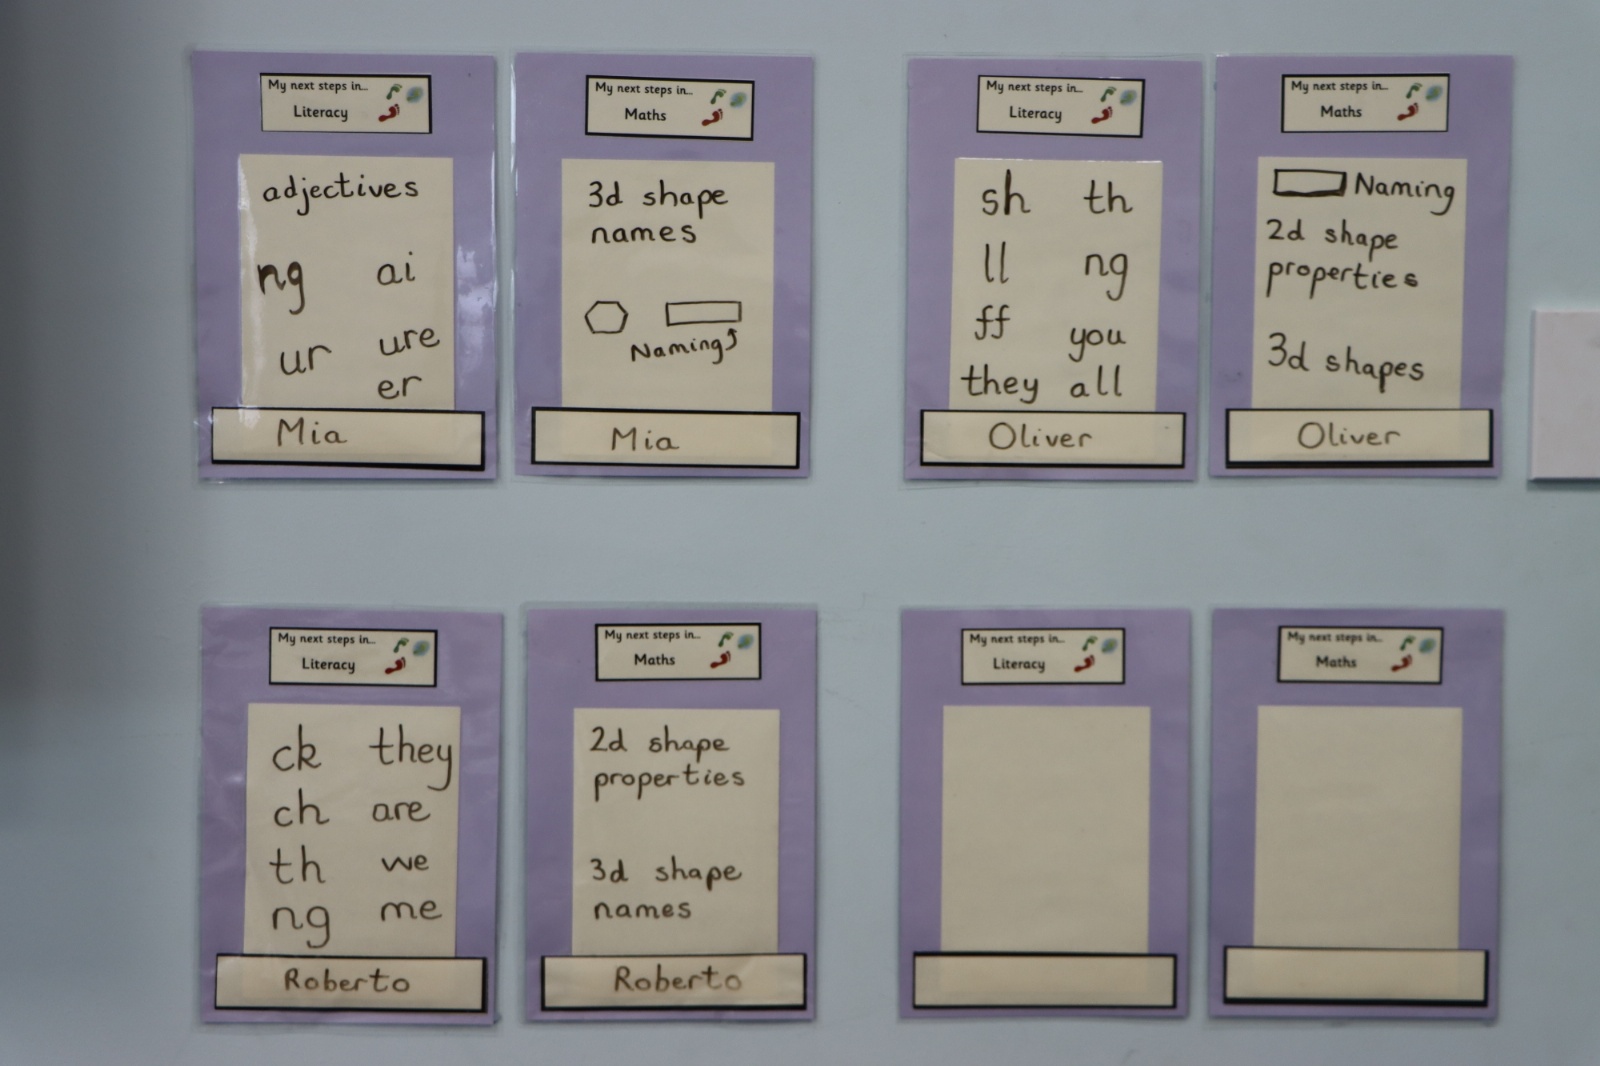 My next steps in...
Literacy
adjectives
ng ai
ur ure
er
Mia
My next steps in...
Maths
3d shape
names
Naming
Mia
My next steps in...
Literacy
sh th
ll ng
ff you
they all
Oliver
My next steps in...
Maths
Naming
2d shape
properties
3d shapes
Oliver
My next steps in...
Literacy
ck they
ch are
th we
ng me
Roberto
My next steps in...
Maths
2d shape
properties
3d shape
names
Roberto
My next steps in...
Literacy
My next steps in...
Maths